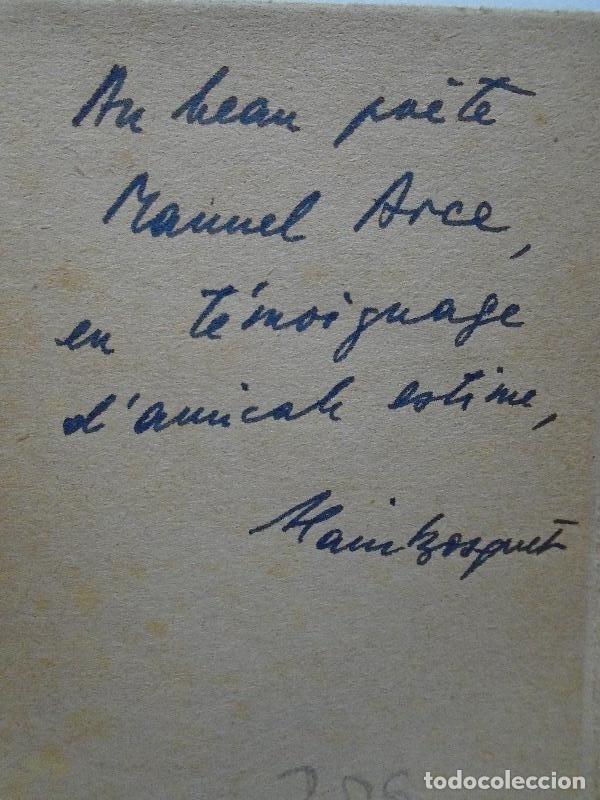 Au beau poète
Manuel Arce,
en témoignage
d'amicale estime,
Alain Bosquet
todocoleccion